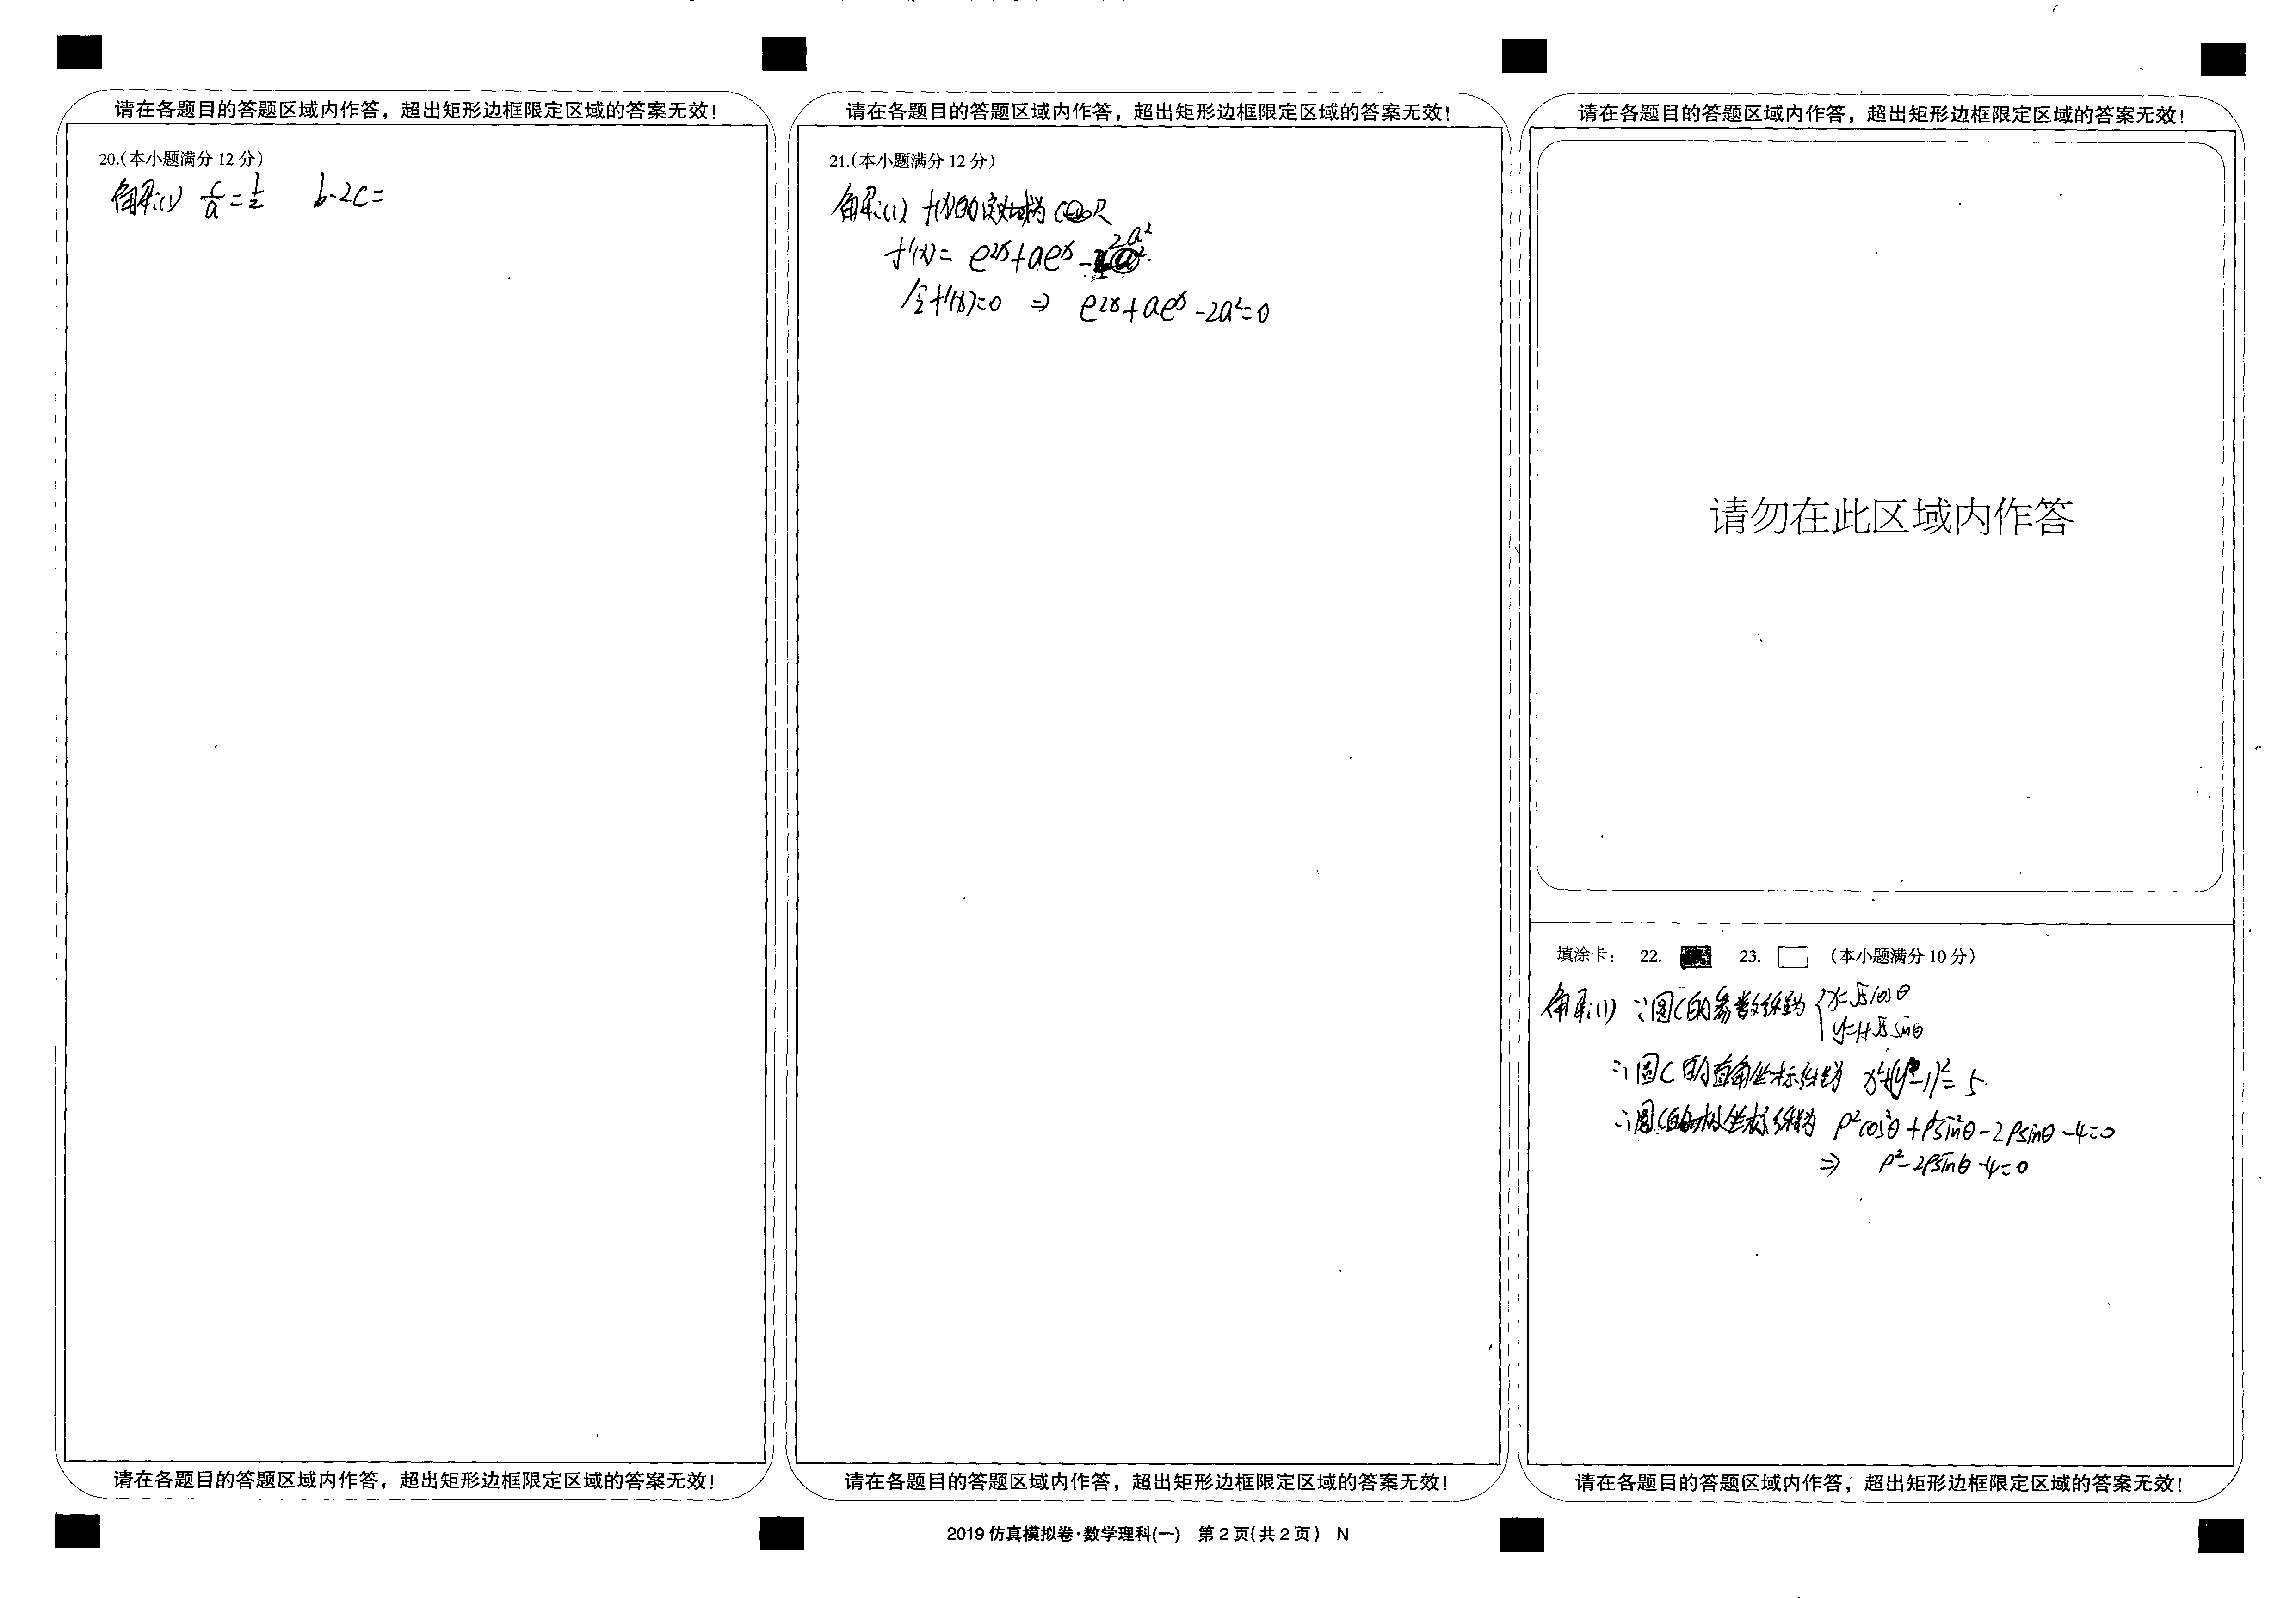 请在各题目的答题区域内作答，超出矩形边框限定区域的答案无效！
20.(本小题满分 12 分)
解:(1) c/a = 1/2   b-2c=
请在各题目的答题区域内作答，超出矩形边框限定区域的答案无效！
请在各题目的答题区域内作答，超出矩形边框限定区域的答案无效！
21.(本小题满分 12 分)
解:(1) f(x)的定义域为 R
f'(x)= e^{2x}+ae^x-2a²
令f'(x)=0 ⇒ e^{2x}+ae^x-2a²=0
请在各题目的答题区域内作答，超出矩形边框限定区域的答案无效！
请在各题目的答题区域内作答，超出矩形边框限定区域的答案无效！
请勿在此区域内作答
填涂卡： 22. 23. （本小题满分 10 分）
解:(1) ∵圆C的参数方程为 {x=√5cosθ
y=1+√5sinθ
∴圆C的直角坐标方程为 x²+(y-1)²=5.
∴圆C的极坐标方程为 ρ²cos²θ+ρ²sin²θ-2ρsinθ-4=0
⇒ ρ²-2ρsinθ-4=0
请在各题目的答题区域内作答，超出矩形边框限定区域的答案无效！
2019 仿真模拟卷·数学理科(一) 第 2 页(共 2 页) N